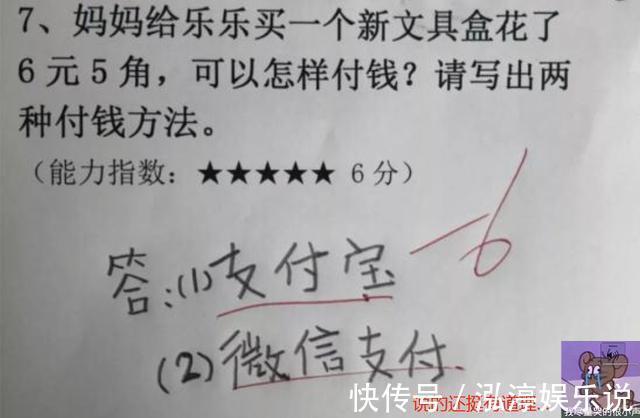 7、妈妈给乐乐买一个新文具盒花了
6元5角，可以怎样付钱？请写出两
种付钱方法。
（能力指数：★★★★★ 6分）
-6
答：(1)支付宝
(2)微信支付.
快传号／泓渟娱乐说